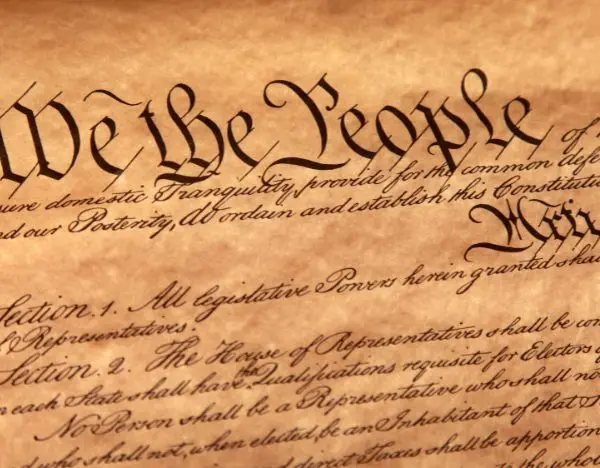 We the People of
sure domestic Tranquility, provide for the common defe
nd our Posterity, do ordain and establish this Constituti
Arti
Section. 1. All legislative Powers herein granted shal
f Representatives.
Section. 2. The House of Representatives shall be com
n each State shall have the Qualifications requisite for Electors o
No Person shall be a Representative who shall not
d who shall not, when elected, be an Inhabitant of that S
and direct Taxes shall be apportion